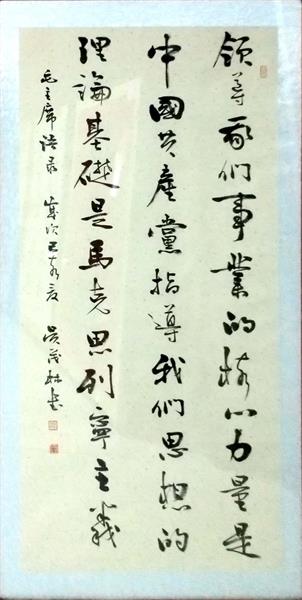 領導我們事業的核心力量是
中國共產黨指導我們思想的
理論基礎是馬克思列寧主義
毛主席語錄 歲次己亥夏 吳茂林書